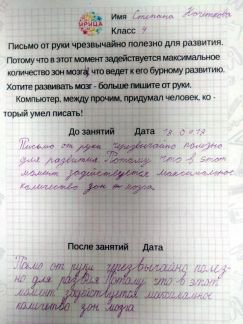 ИРИЦА
Имя Степана Кочеткова
Класс 4
Письмо от руки чрезвычайно полезно для развития.
Потому что в этот момент задействуется максимальное
количество зон мозга, что ведет к его бурному развитию.
Хотите развивать мозг - больше пишите от руки.
Компьютер, между прочим, придумал человек, ко-
торый умел писать!
До занятий Дата 18.04.19
Письмо от руки чрезвычайно полезно
для развития. Потому что в этот
момент задействуется максимальное
количество зон мозга.
После занятий Дата
от руки чрезвычайно полез-
но для Потому что в этот
момент задействуется максимальное
количество зон мозга